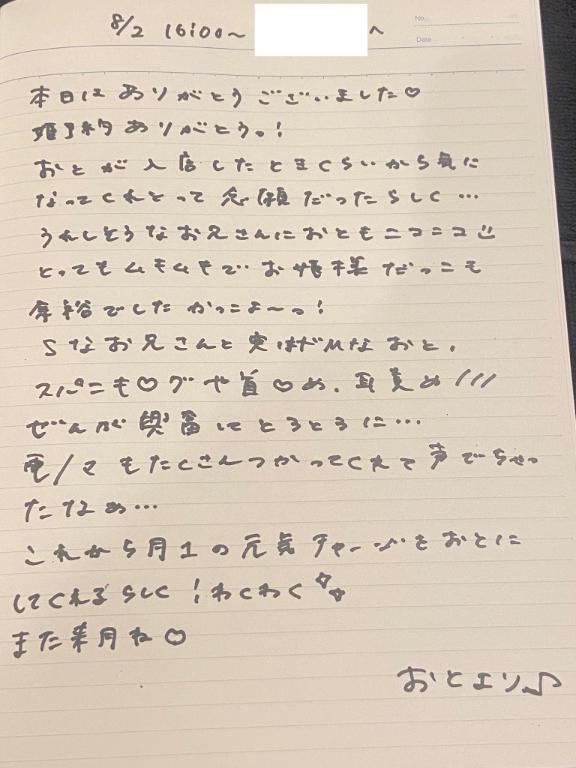 No.
Date
8/2 16:00〜 へ
本日はありがとうございました♡
ありがとうっ!
おとが入店したときくらいから気に
なってくれとって念願だったらしく…
うれしそうなお兄さんにおともニコニコ
とってもムキムキでお姫様だっこも
余裕でしたかっこよ〜っ!
Sなお兄さんと実はドMなおと。
スパンキ♡グや首♡め、耳責め///
ぜんぶ興奮してとろとろに…
電/マもたくさんつかってくれて声でちゃっ
たなぁ…
これから月1の元気チャージをおとに
してくれるらしく!わくわく☆☆
また来月ね♡
おとエリ♪